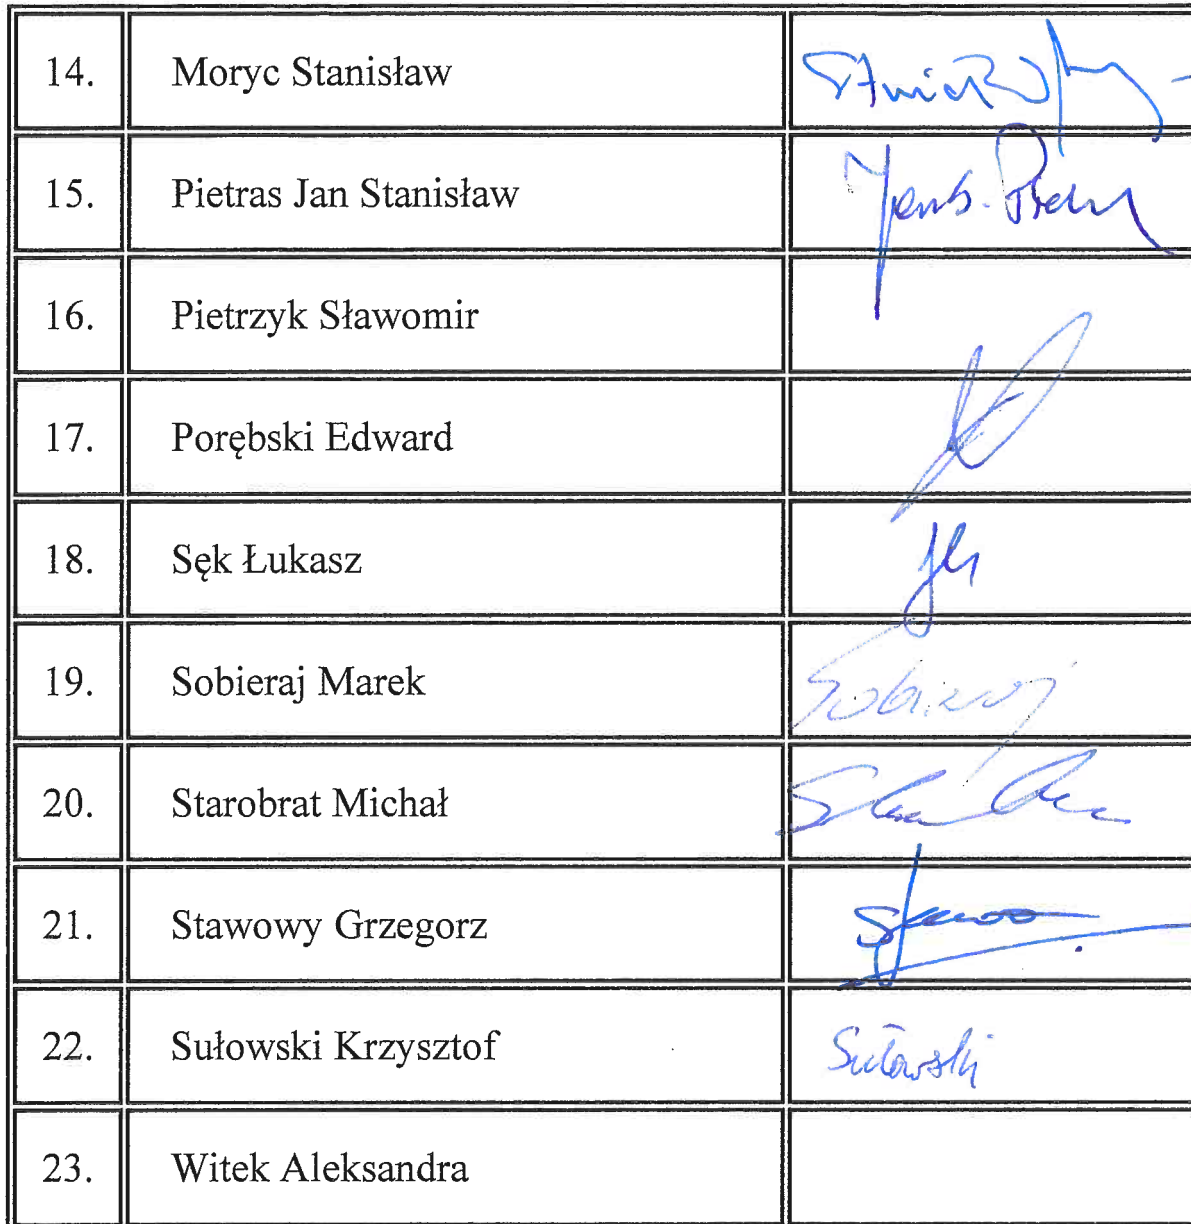 14. Moryc Stanisław
15. Pietras Jan Stanisław
16. Pietrzyk Sławomir
17. Porębski Edward
18. Sęk Łukasz
19. Sobieraj Marek Sobieraj
20. Starobrat Michał
21. Stawowy Grzegorz
22. Sułowski Krzysztof Sułowski
23. Witek Aleksandra